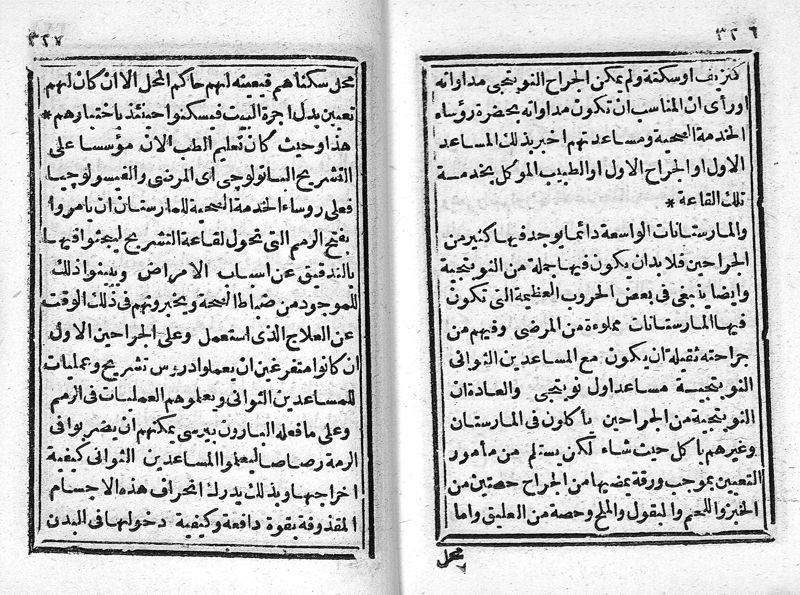 ٣٢٦
كنزيف او سكتة ولم يمكن الجراح النوبتجى مداواته
او رأى ان المناسب ان تكون مداواته بحضرة رؤساء
الخدمة الصحية ومساعدتهم اخبر بذلك المساعد
الاول او الجراح الاول او الطبيب الموكل بخدمة
تلك القاعة *
والمارستانات الواسعة دائما يوجد فيها كثير من
الجراحين فلا بد ان يكون فيها جملة من النوبتجية
وايضا ينبغى فى بعض الحروب العظيمة التى تكون
فيها المارستانات مملوءة من المرضى وفيهم من
جراحته ثقيلة ان يكون مع المساعدين الثوانى
النوبتجية مساعد اول نوبتجى والعادة ان
النوبتجية من الجراحين يأكلون فى المارستان
وغيرهم يأكل حيث شاء لكن يستلم من مأمور
التعيين بموجب ورقة يمضيها من الجراح حصتين من
الخبز واللحم والبقول والملح وحصة من العليق واما
محل
٣٢٧
محل سكناهم فيعينه لهم حاكم المحل الا ان كان لهم
تعيين بدل اجرة البيت فيسكنوا حينئذ باختيارهم *
هذا وحيث كان تعليم الطب الان مؤسسا على
التشريح الباتولوجى اى المرضى والفيسولوجيا
فعلى روساء الخدمة الصحية للمارستان ان يامروا
بفتح الرمم التى تحول لقاعة التشريح ليبحثوا فيها
بالتدقيق عن اسباب الامراض ويبينوا ذلك
للموجود من ضباط الصحة ويخبروتهم فى ذلك الوقت
عن العلاج الذى استعمل وعلى الجراحين الاول
ان كانوا متفرغين ان يعملوا دروس تشريح وعمليات
للمساعدين الثوانى ويعلموهم العمليات فى الرمم
وعلى ما فعله البارون بيرسى يمكنهم ان يضربوا فى
الرمة رصاصا ليعلموا المساعدين الثوانى كيفية
اخراجها وبذلك يدرك انحراف هذه الاجسام
المقذوفة بقوة دافعة وكيفية دخولها فى البدن